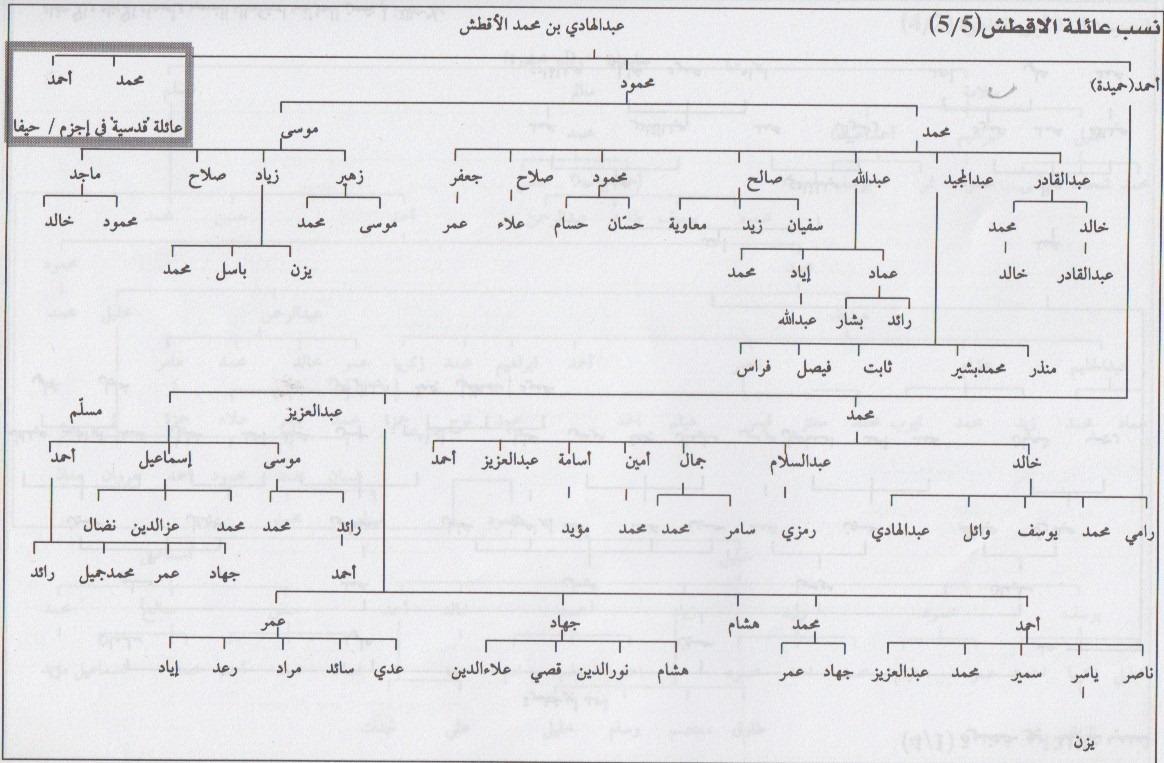 نسب عائلة الاقطش(5/5)
عبدالهادي بن محمد الأقطش
أحمد(حميدة) محمود محمد أحمد
عائلة "قدسية" في إجزم / حيفا
محمد موسى
عبدالقادر عبدالمجيد عبدالله صالح محمود صلاح جعفر زهير زياد صلاح ماجد
خالد محمد سفيان زيد معاوية حسّان حسام علاء عمر موسى محمد محمود خالد
عبدالقادر خالد عماد إياد محمد يزن باسل محمد
رائد بشار عبدالله
منذر محمدبشير ثابت فيصل فراس
محمد عبدالعزيز مسلّم
خالد عبدالسلام جمال أمين أسامة عبدالعزيز أحمد موسى إسماعيل أحمد
رامي محمد يوسف وائل عبدالهادي رمزي سامر محمد محمد مؤيد رائد محمد محمد عزالدين نضال
أحمد جهاد عمر محمدجميل رائد
أحمد محمد هشام جهاد عمر
ناصر ياسر سمير محمد عبدالعزيز جهاد عمر هشام نورالدين قصي علاءالدين عدي سائد مراد رعد إياد
يزن